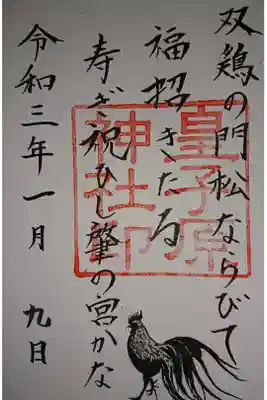 双鶏の門松ならびて
福招きたる
寿ぎ祝ひし肇の宮かな
令和三年一月 九日
皇子原
神社印